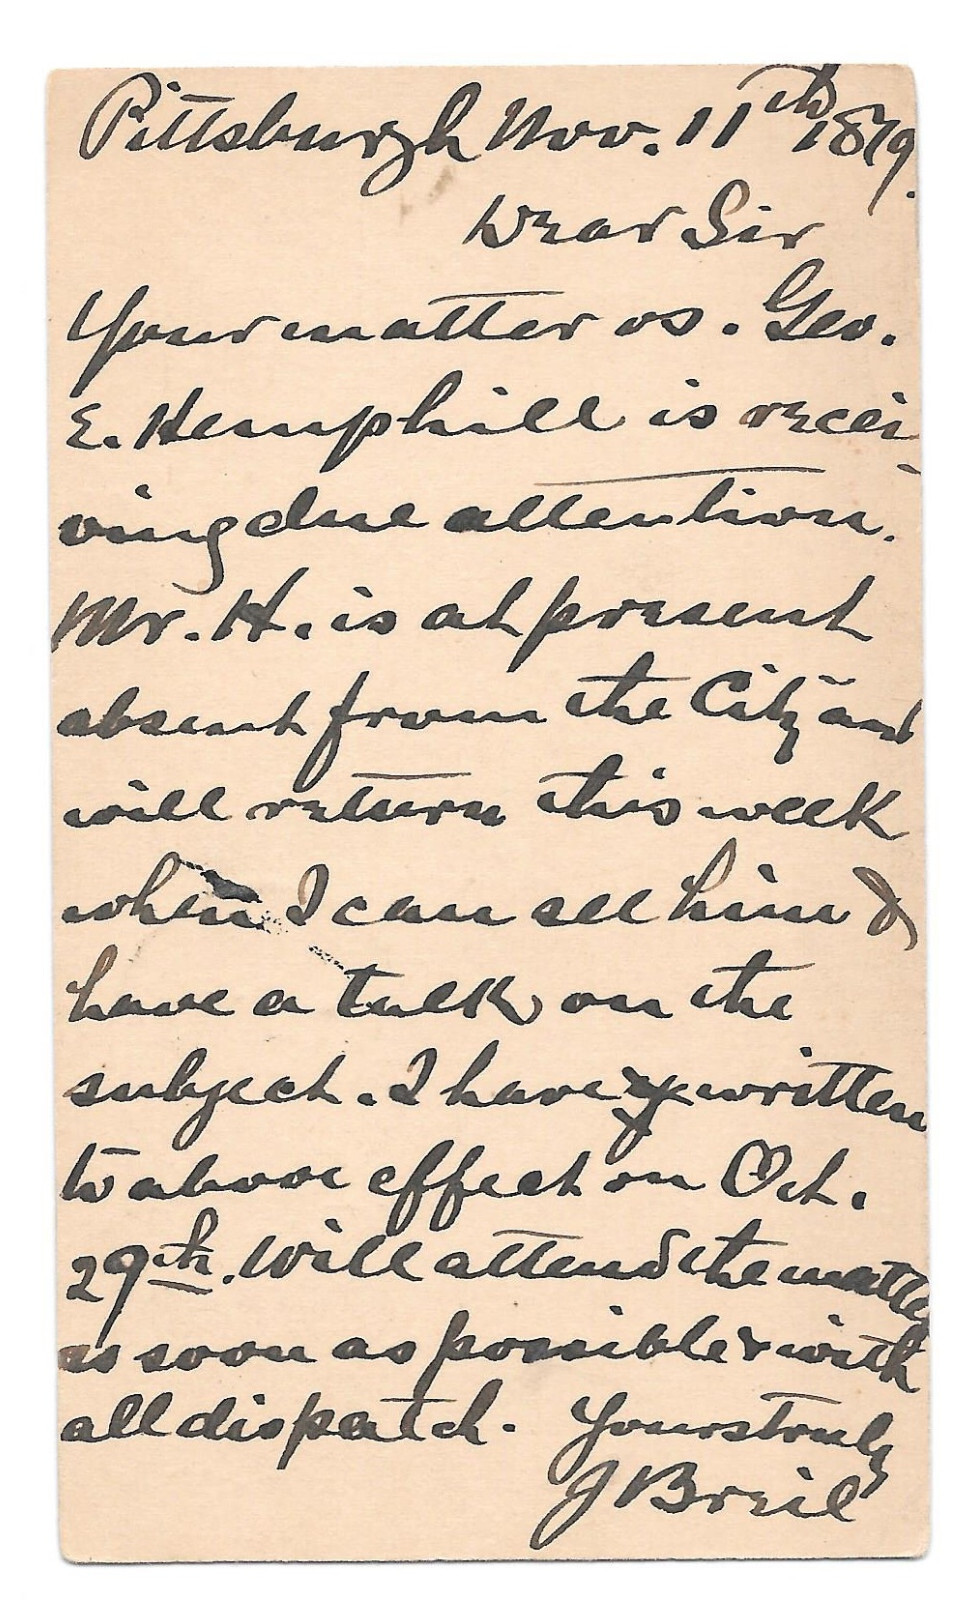 Pittsburgh Nov. 11th 1879.
Dear Sir
Your matter vs. Geo.
E. Hemphill is recei-
ving due attention.
Mr. H. is at present
absent from the City and
will return this week
when I can see him &
have a talk on the
subject. I have written
to above effect on Oct.
29th. Will attend the matter
as soon as possible & with
all dispatch. Yours truly
J Breil